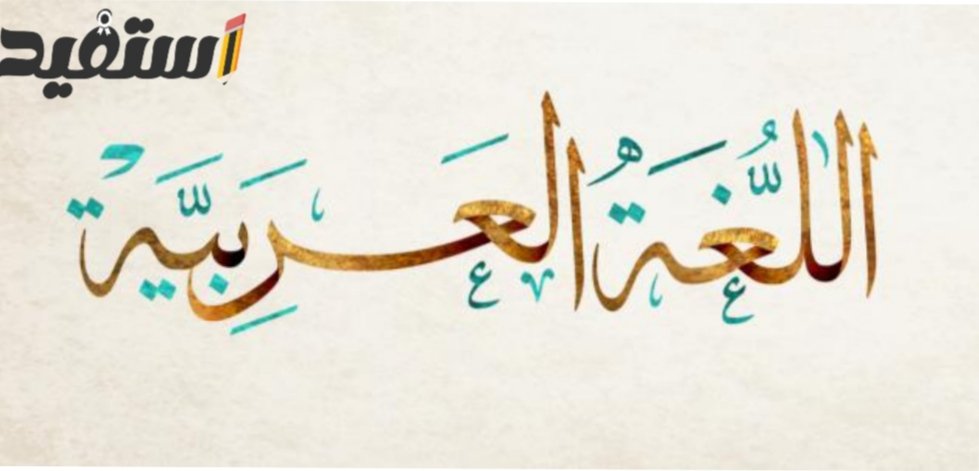 استفيد
اللُّغَةُ العَرَبِيَّة